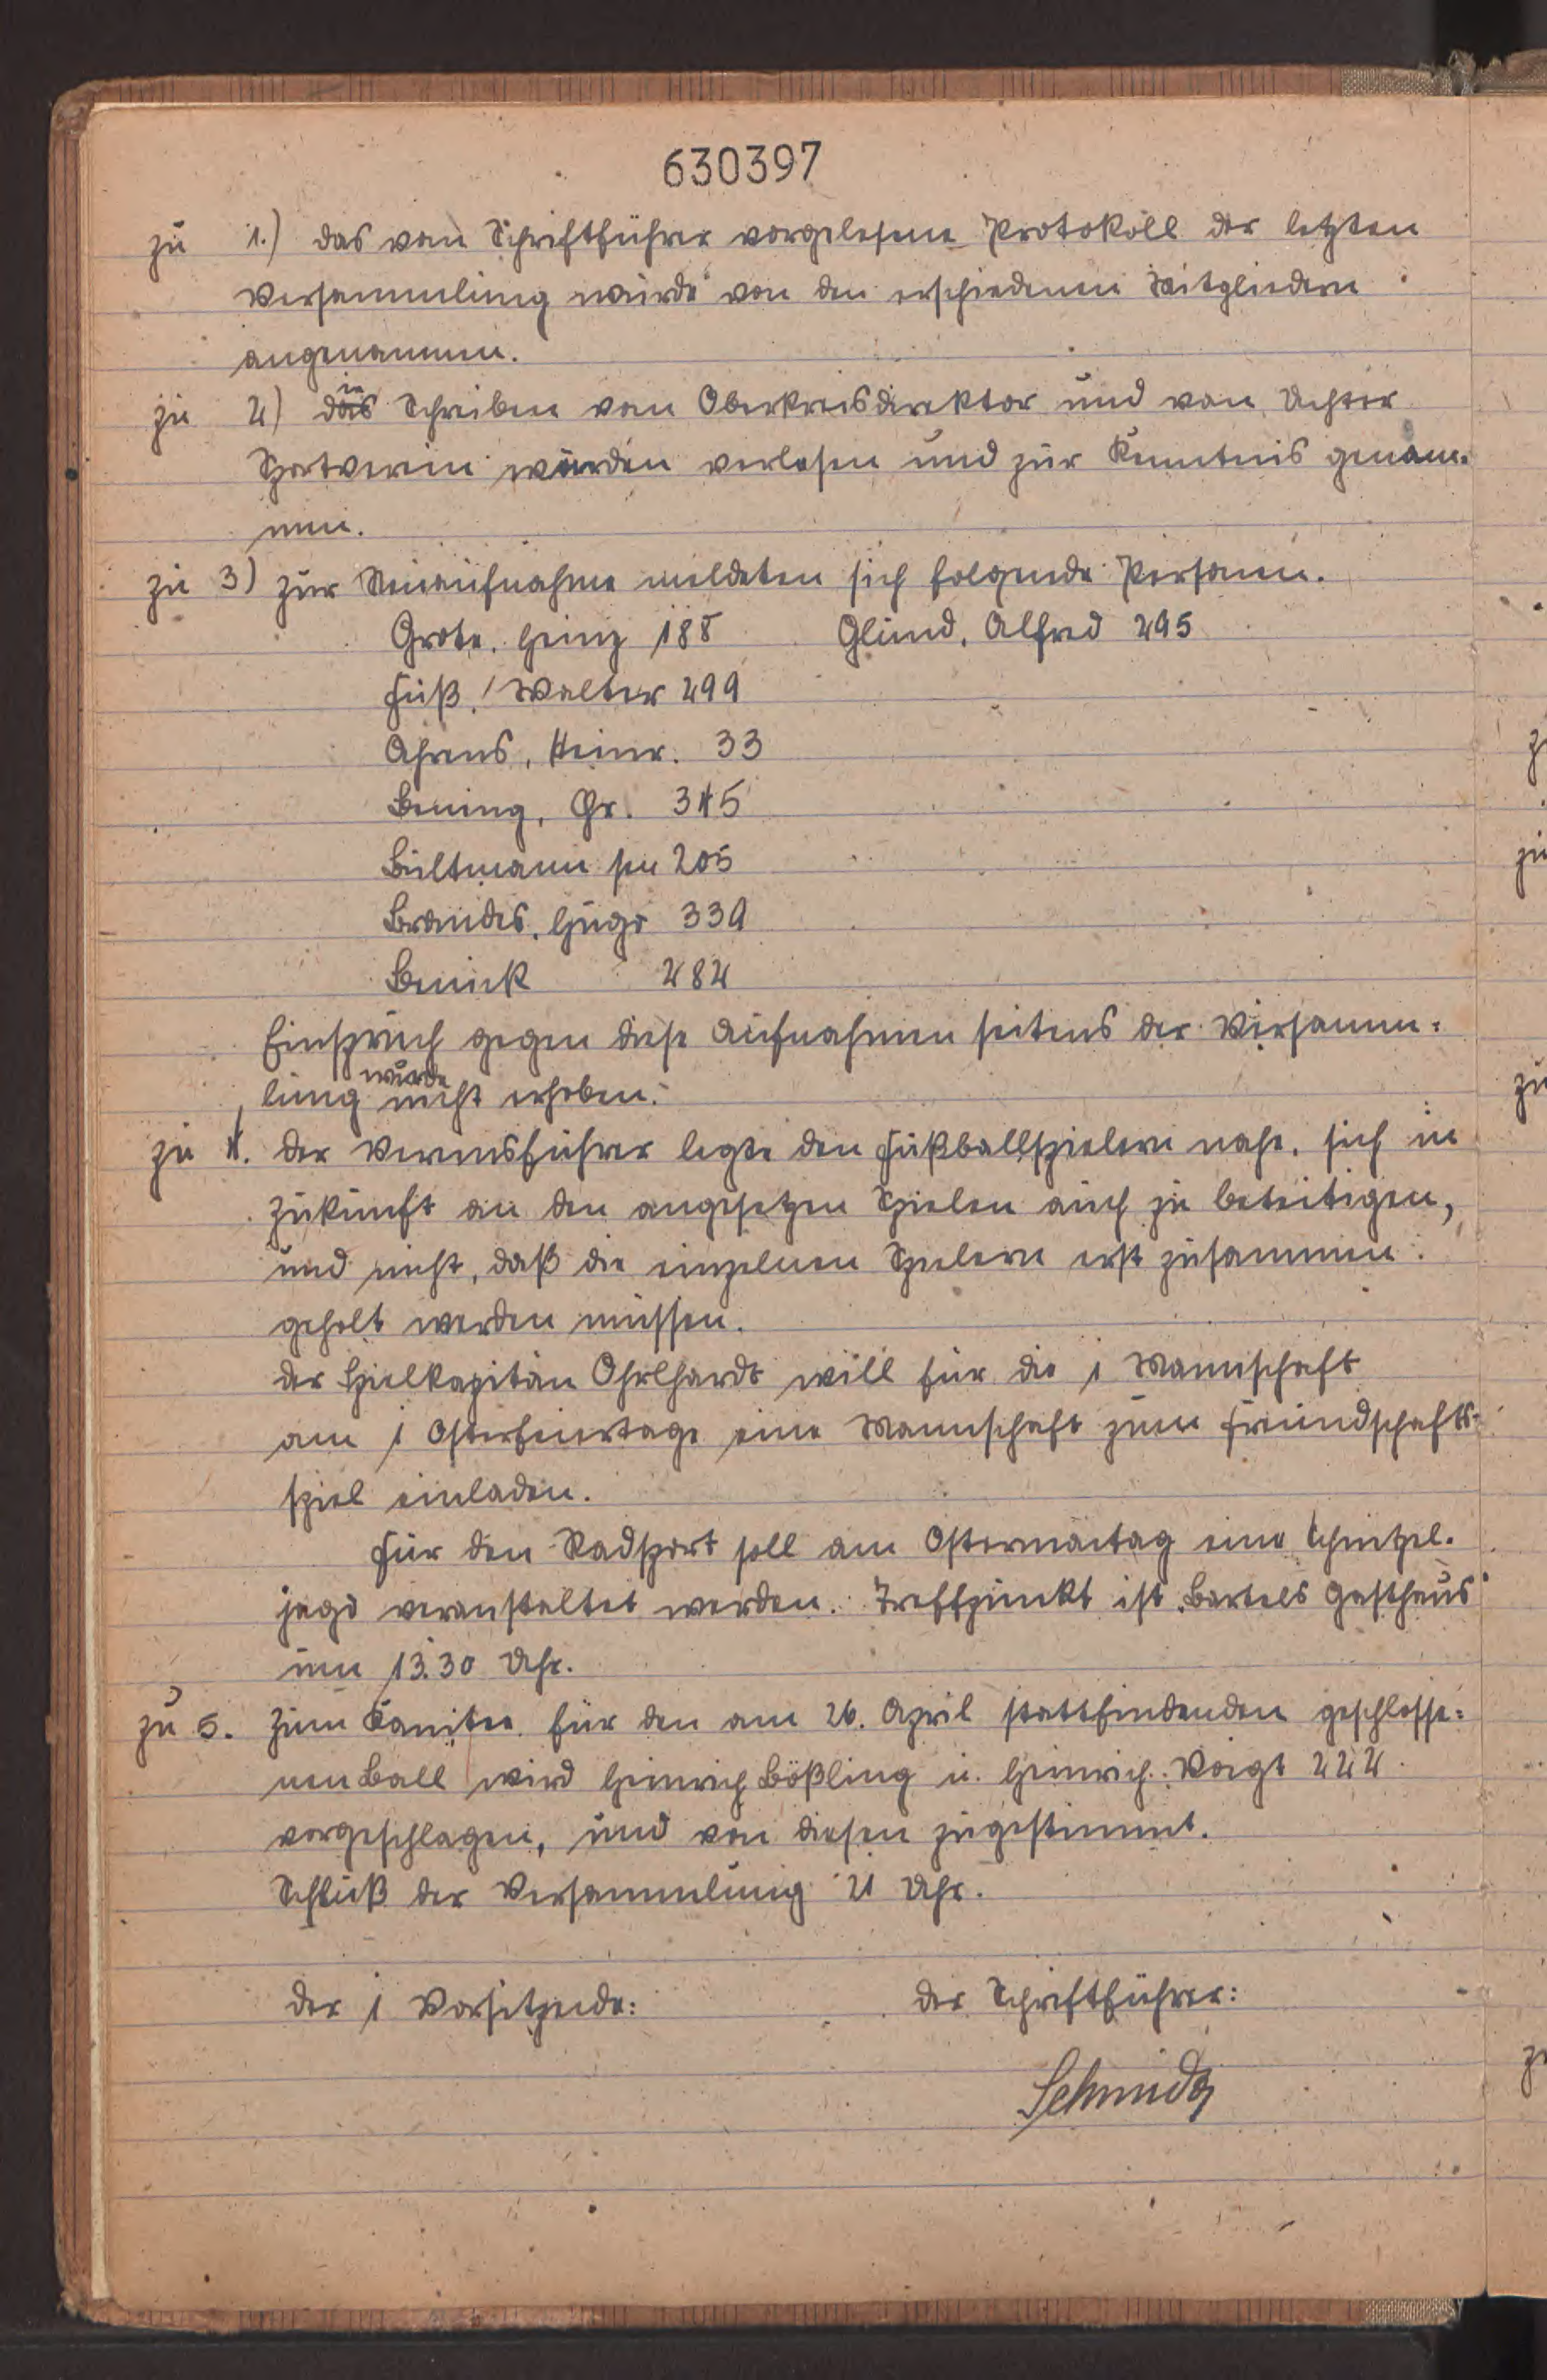 630397
zu 1.) das vom Schriftführer vorgelesene Protokoll der letzten
Versammlung wurde von den erschienenen Mitgliedern
angenommen.
zu 2) die Schreiben vom Oberkreisdirektor und vom Uchter
Sportverein wurden verlesen und zur Kenntnis genom-
men.
zu 3) zur Neuaufnahme meldeten sich folgende Personen.
Grote, Heinz 188 Glund, Alfred 295
Fuß, Walter 299
Ahrens, Heinr. 33
Bening, Gr. 345
Bültmann sen 205
Brandes, Hugo 339
282
Einspruch gegen diese Aufnahmen seitens der Versamm-
lung wurde nicht erhoben.
zu 4. der Vereinsführer legte den Fußballspielern nahe, sich in
Zukunft an den angesetzen Spielen auch zu beteitigen,
und nicht, daß die einzelnen Spielern erst zusammen-
geholt werden müssen.
der Spielkapitän Ohlhardt will für die 1 Mannschaft
am 1 Osterfeiertage eine Mannschaft zum Freundschafts-
spiel einladen.
Für den Radsport soll am Ostermontag eine Schnitzel-
jagd veranstaltet werden. Treffpunkt ist Bartels Gasthaus
um 13.30 Uhr.
zu 5. zum Komitee für den am 26. April stattfindenden geschlosse-
nen Ball wird Heinrich Bößling u. Heinrich Voigt 222
vorgeschlagen, und von diesen zugestimmt.
Schluß der Versammlung 21 Uhr.
der 1 Vorsitzende: der Schriftführer:
Schmidt